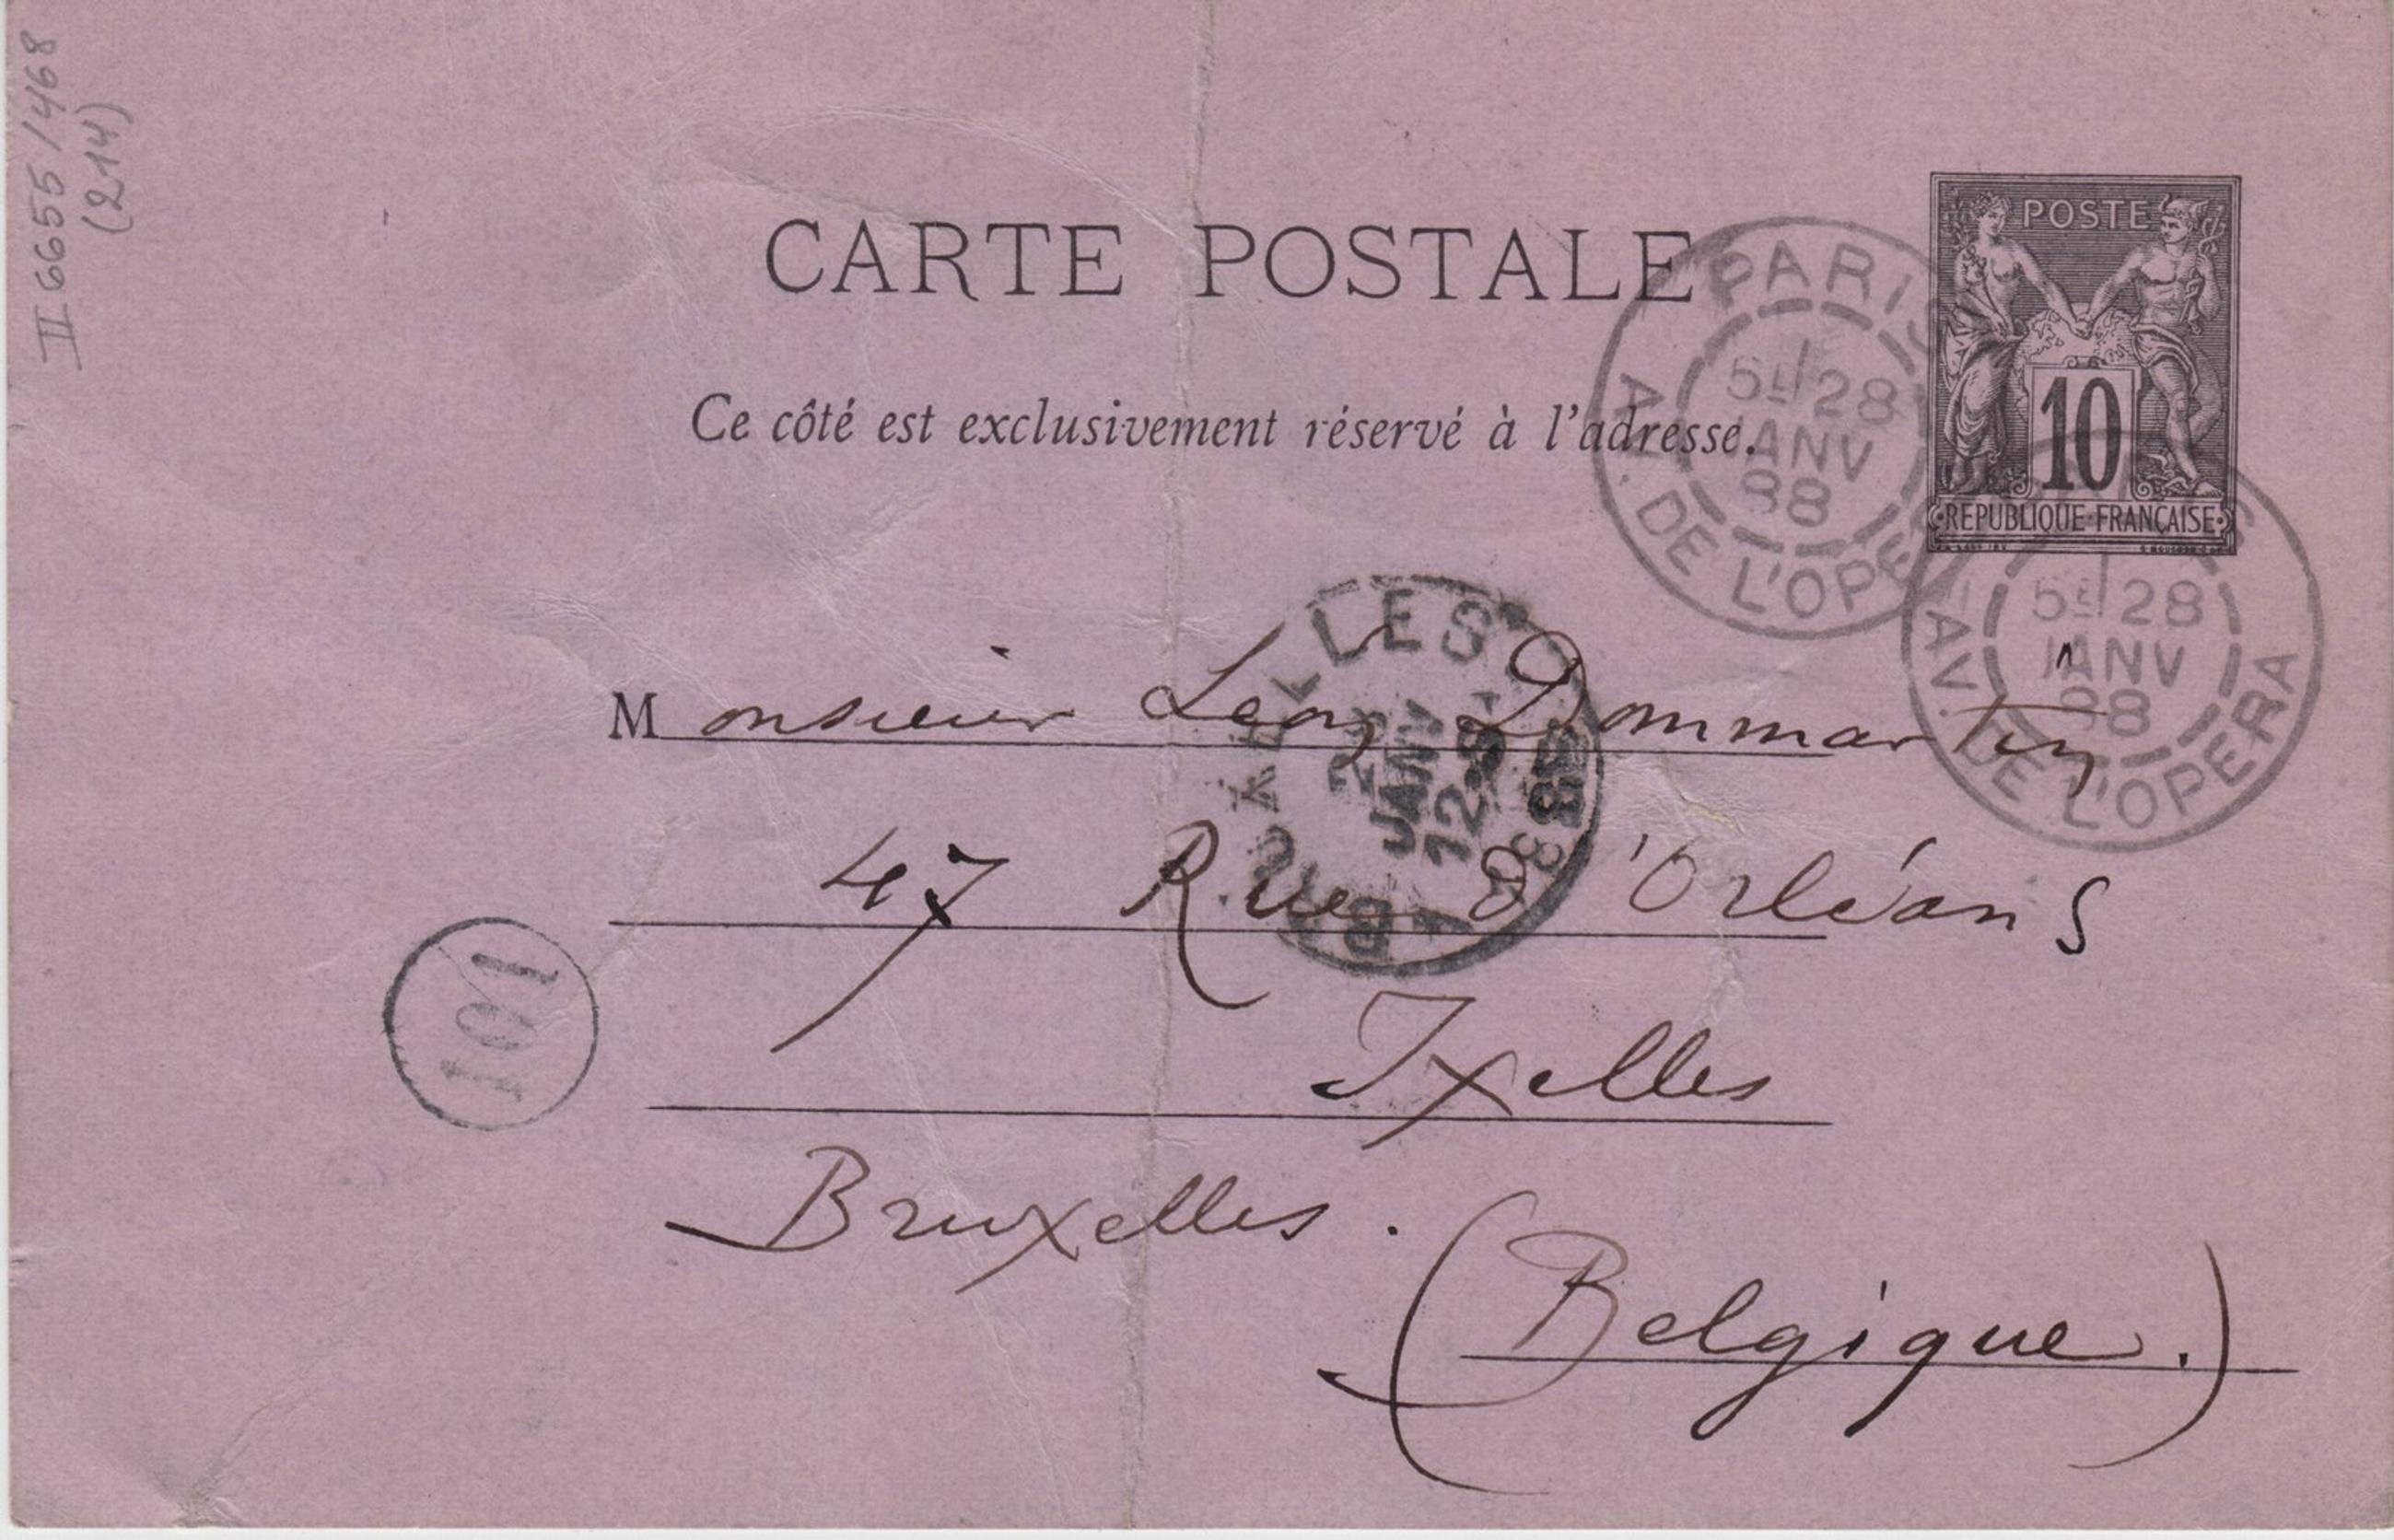 II 6655/468
(214)
CARTE POSTALE
Ce côté est exclusivement réservé à l'adresse.
POSTE
10
REPUBLIQUE FRANÇAISE
PARIS
5E 28
JANV
88
AV. DE L'OPERA
5E 28
JANV
88
AV. DE L'OPERA
BRUXELLES 1
JANV
12-S
1888
Monsieur Leon Dommartin
47 Rue d'Orléans
Ixelles
Bruxelles.
(Belgique.)
101